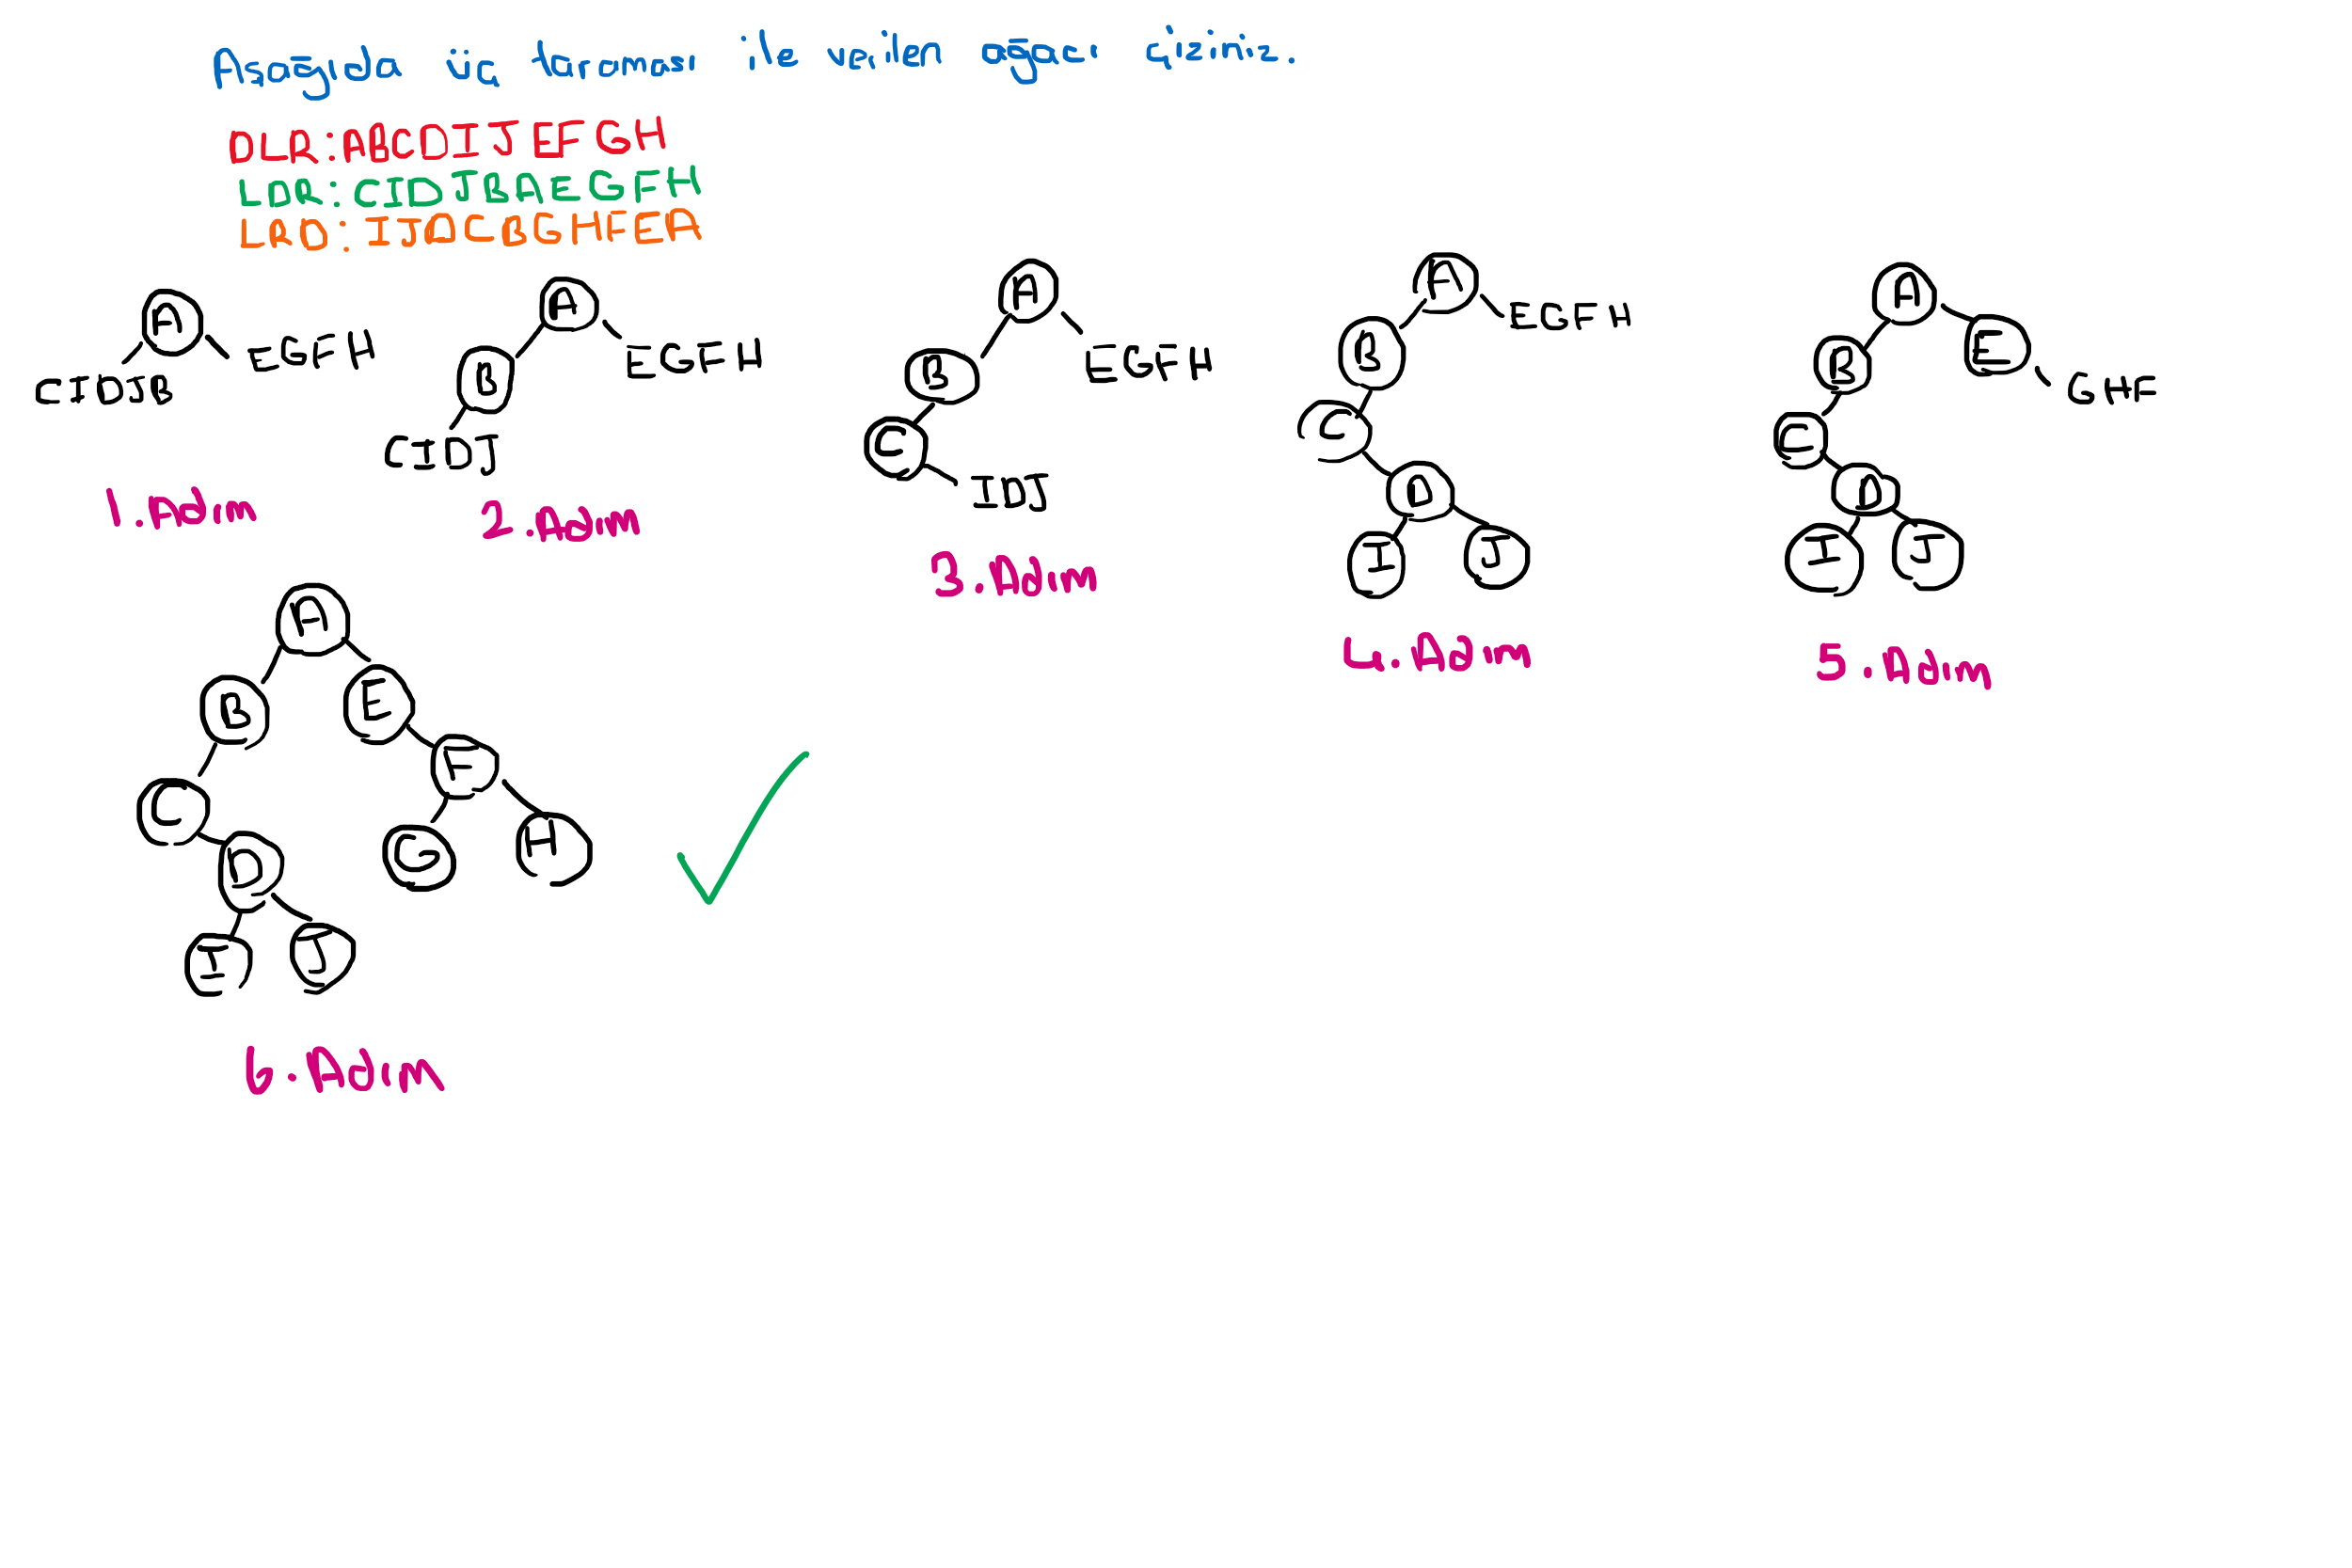 Aşağıda üç taraması ile verilen ağacı çiziniz.
DLR: ABCDIJEFGH
LDR: CIDJBAEGFH
LRD: IJDCBGHFEA
A
CIDJB EGFH
1. Adım
A
B EGFH
CIDJ
2. Adım
A
B EGFH
C
IDJ
3. Adım
A
B EGFH
C
D
I J
4. Adım
A
B E
C GHF
D
I J
5. Adım
A
B E
C F
D G H
I J
6. Adım